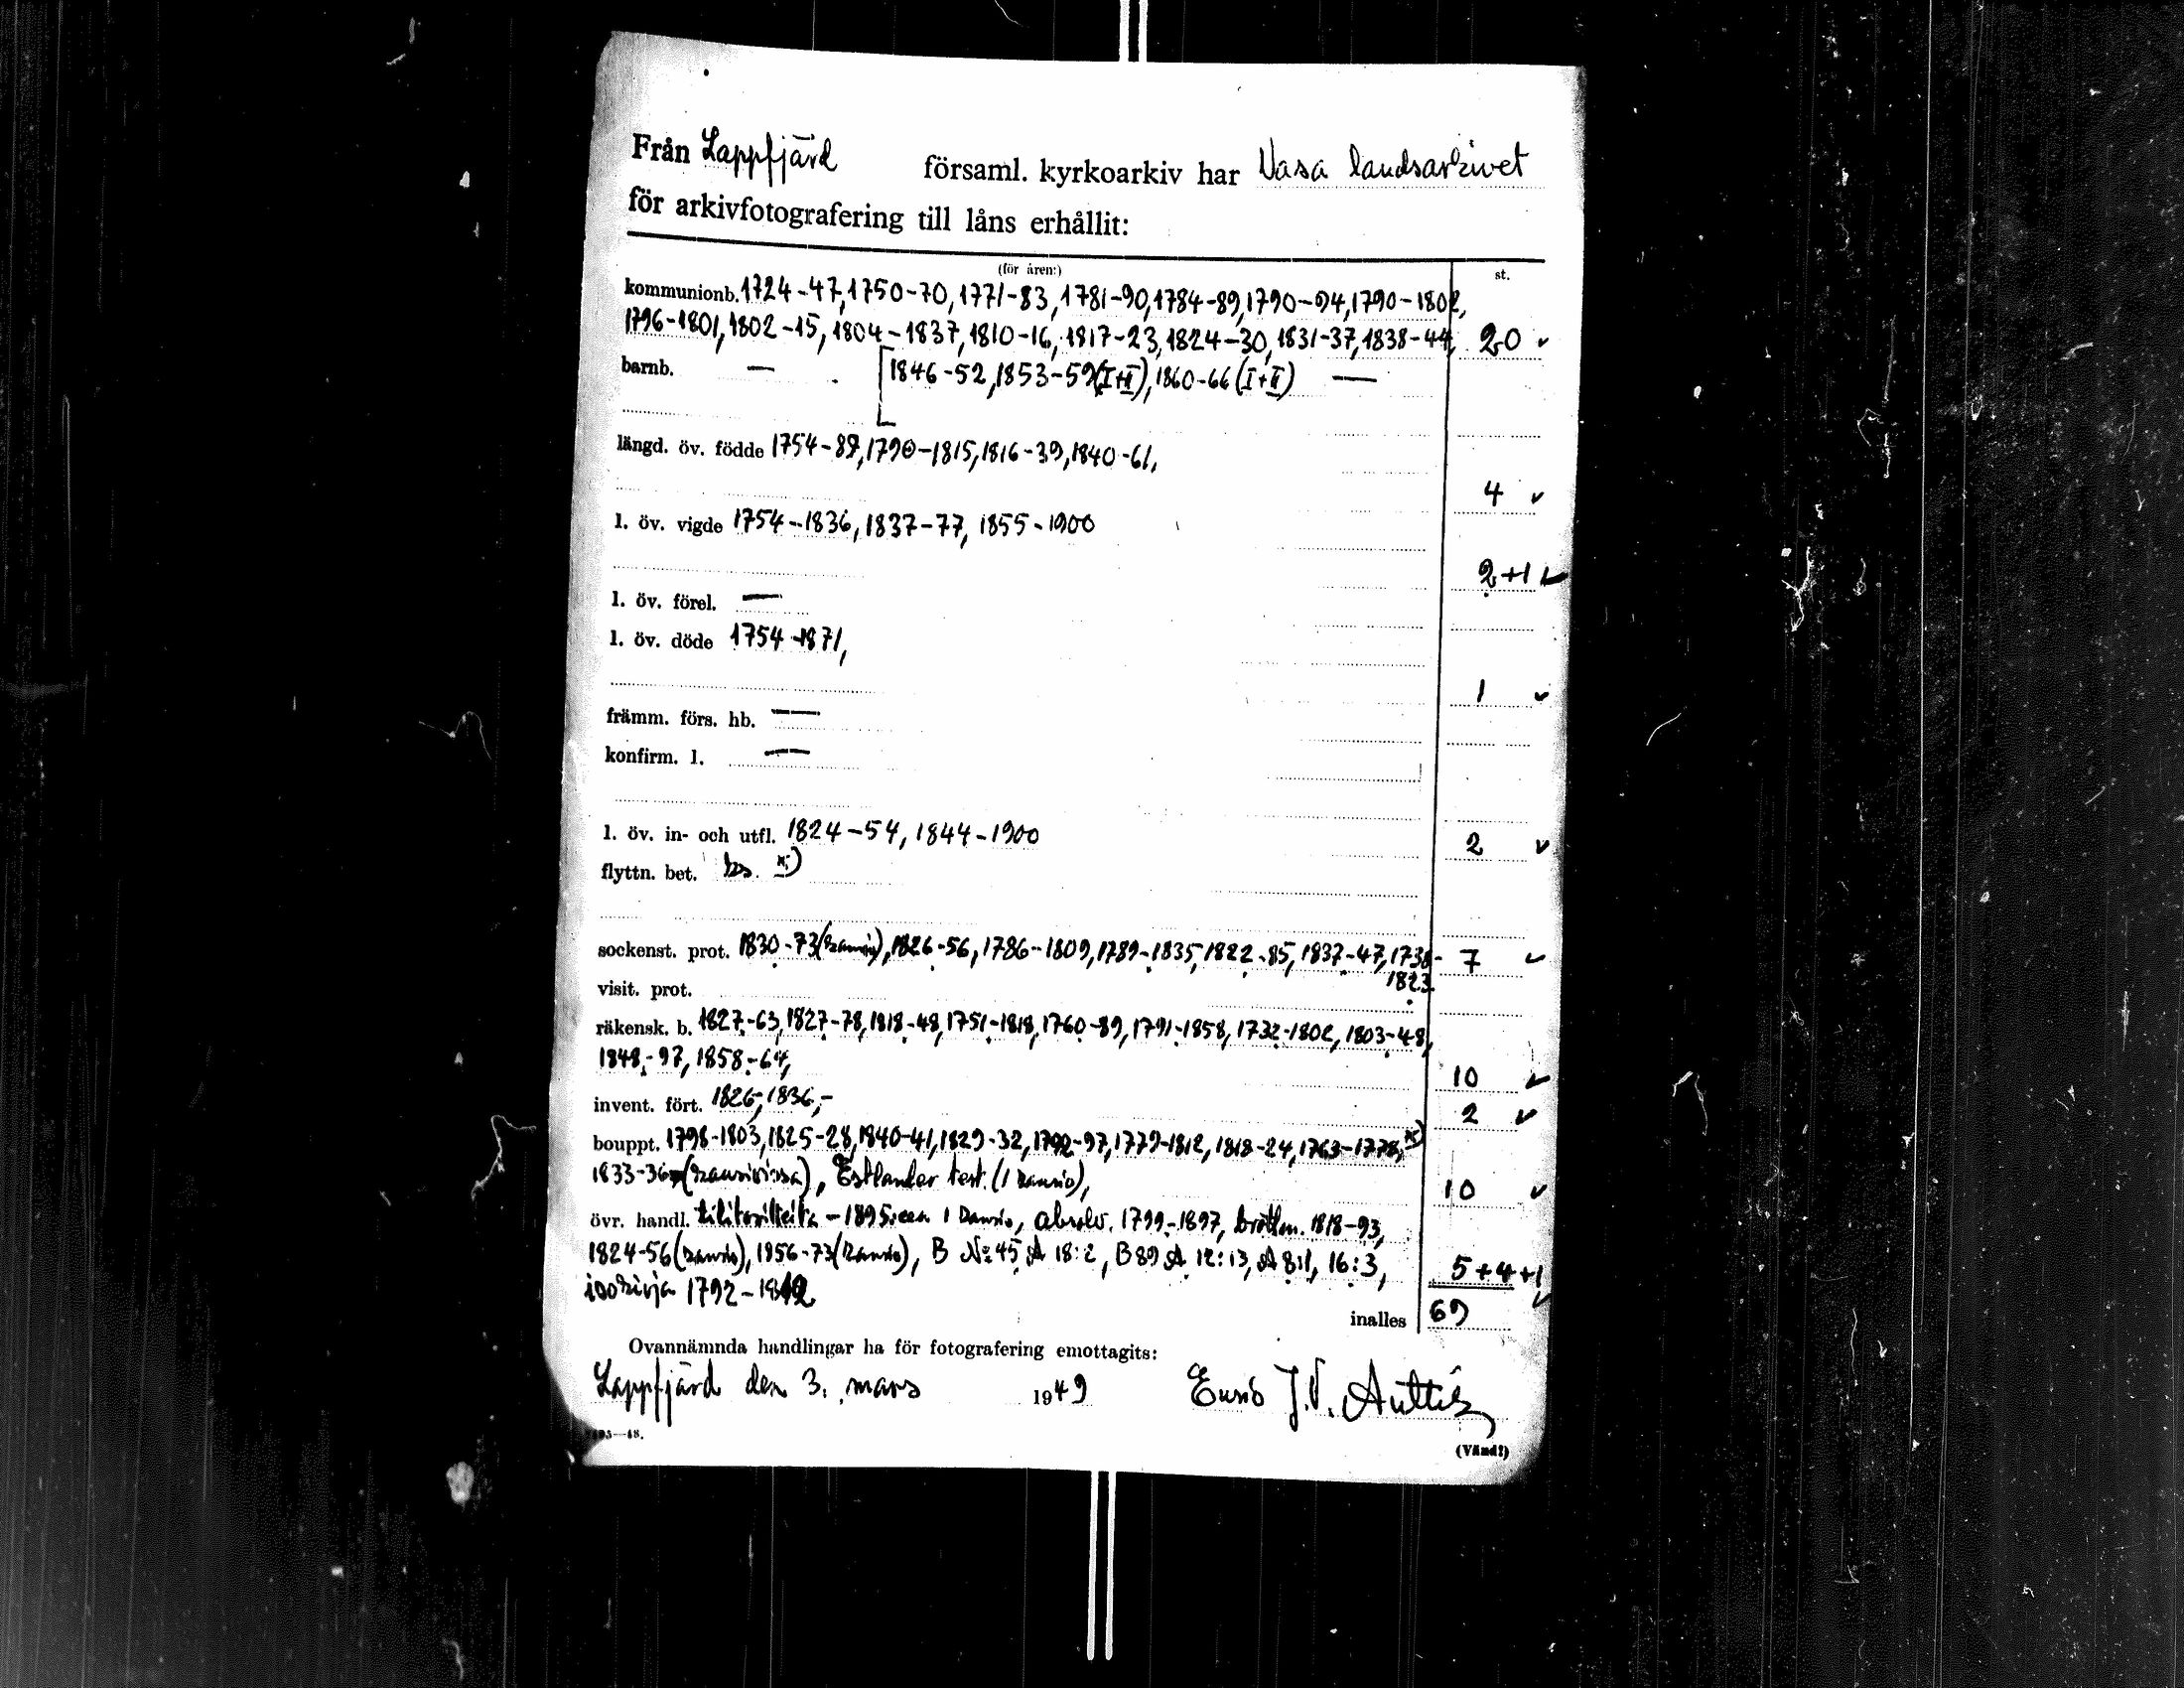 Från Lappfjärd församl. kyrkoarkiv har Vasa landsarkivet
för arkivfotografering till låns erhållit:
(för åren:) st.
kommunionb. 1724-47, 1750-70, 1771-83, 1781-90, 1784-89, 1790-94, 1790-1802,
1796-1801, 1802-15, 1804-1837, 1810-16, 1817-23, 1824-30, 1831-37, 1838-44, 20 ✓
barnb. — [1846-52, 1853-59 (I+II), 1860-66 (I+II) —
längd. öv. födde 1754-89, 1790-1815, 1816-39, 1840-61,
4 ✓
l. öv. vigde 1754-1836, 1837-77, 1855-1900
2+1 ✓
l. öv. förel. —
l. öv. döde 1754-1871,
1 ✓
främm. förs. hb. —
konfirm. l. —
l. öv. in- och utfl. 1824-54, 1844-1900 2 ✓
flyttn. bet. ks. x)
sockenst. prot. 1830-73 (kansio), 1826-56, 1786-1809, 1789-1835, 1822-85, 1837-47, 1736- 7 ✓
1823
visit. prot.
räkensk. b. 1827-63, 1827-78, 1818-48, 1751-1818, 1760-89, 1791-1858, 1732-1802, 1803-48,
1848-97, 1858-64, 10 ✓
invent. fört. 1826-, 1836,- 2 ✓
bouppt. 1798-1803, 1825-28, 1840-41, 1829-32, 1792-97, 1779-1812, 1818-24, 1763-1778, x)
1833-36 (kansioissa), Estlander test. (1 kansio), 10 ✓
övr. handl. - 1895:een 1 kansio, absolv. 1799-1897, 1818-93,
1824-56 (kansio), 1856-73 (kansio), B No 45 A 18:2, B 89 A 12:13, A 8:1, 16:3, 5+4+1 ✓
isokirja 1792-1812
inalles 69
Ovannämnda handlingar ha för fotografering emottagits:
Lappfjärd den 3. mars 1949 J.V.
—48.
(Vänd!)